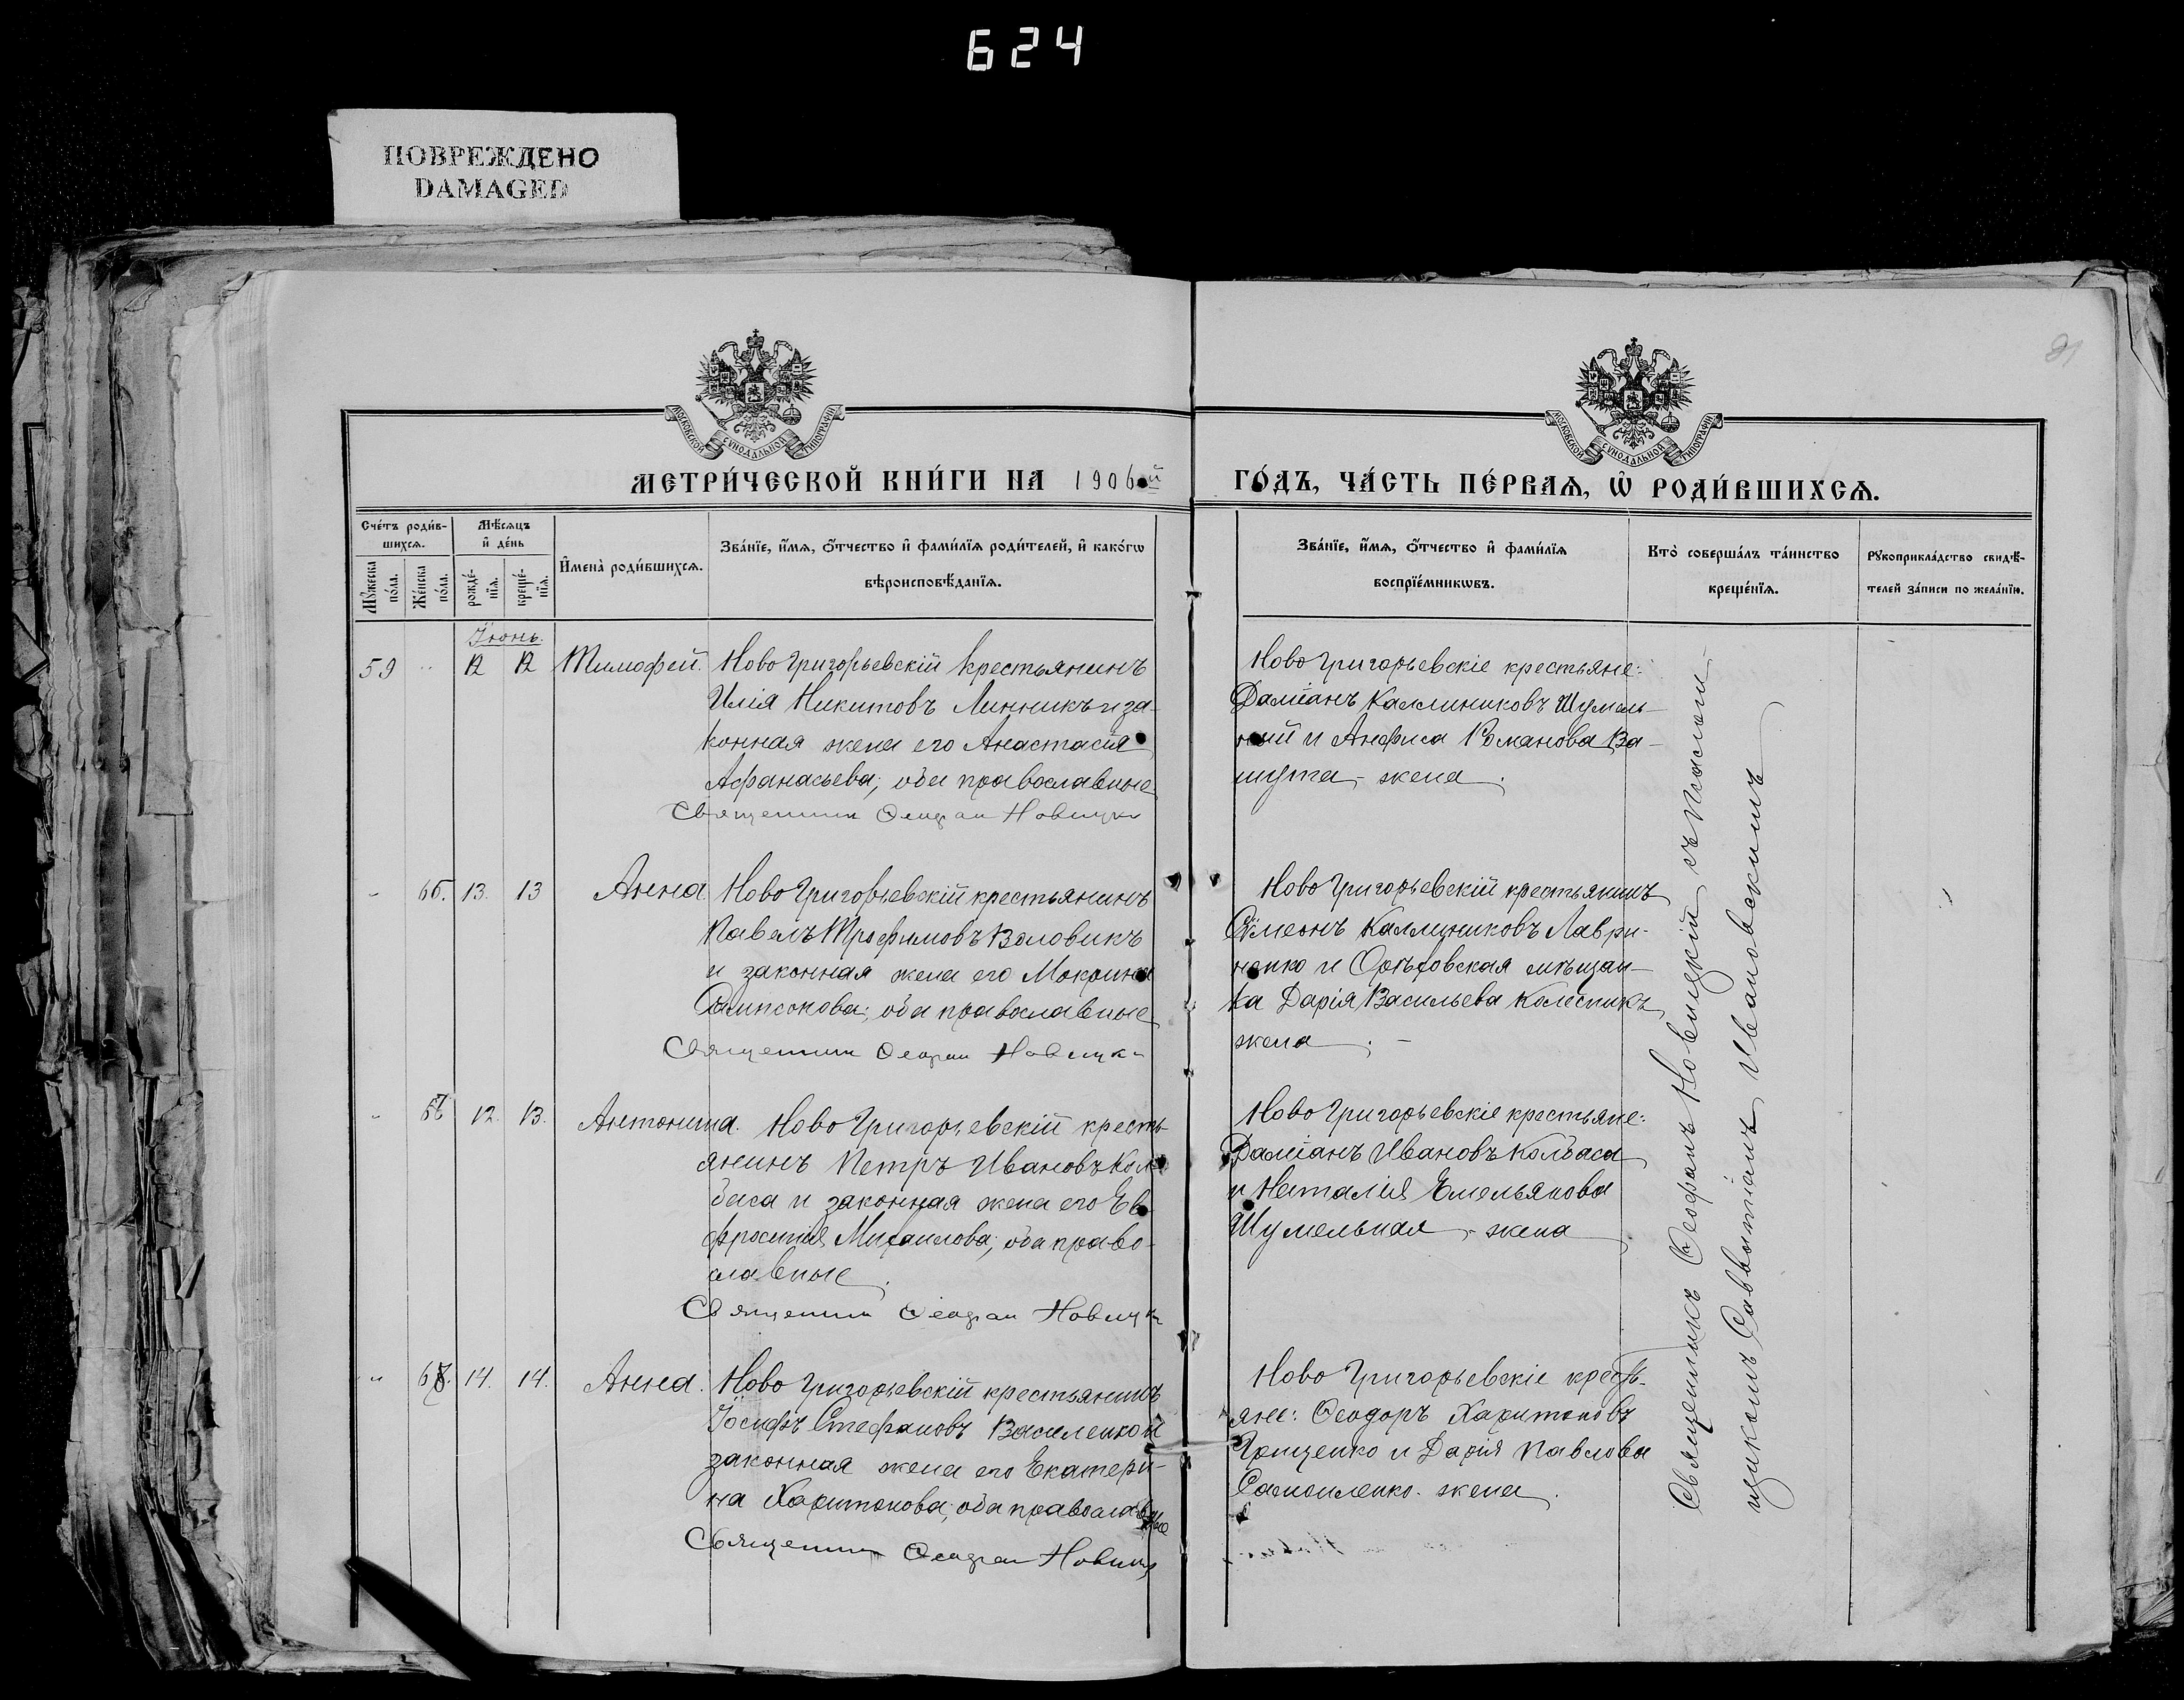 624
ПОВРЕЖДЕНО
DAMAGED
91
МОСКОВСКОЙ СѴНОДАЛЬНОЙ ТИПОГРАФІИ
МОСКОВСКОЙ СѴНОДАЛЬНОЙ ТИПОГРАФІИ
МЕТРИ́ЧЕСКОЙ КНИ́ГИ НА 1906 й ГО́ДЪ, ЧА́СТЬ ПЕ́РВАѦ, Ѡ҆ РОДИ́ВШИХСѦ.
Сче́тъ роди́в-
шихсѧ.
Мꙋ́жеска по́ла.
Же́нска по́ла.
Мѣ́сѧцъ
и҆ де́нь
рожде́-
нїѧ.
креще́-
нїѧ.
И҆мена̀ роди́вшихсѧ.
Зва́нїе, и҆́мѧ, ѻ҆́тчество и҆ фами́лїѧ роди́телей, и҆ како́гѡ
вѣроисповѣ́данїѧ.
Зва́нїе, и҆́мѧ, ѻ҆́тчество и҆ фами́лїѧ
воспрїе́мникѡвъ.
Кто̀ соверша́лъ та́инство
креще́нїѧ.
Рꙋкоприкла́дство свидѣ́-
телей за́писи по жела́нїю.
Іюнь.
59 " 12 12 Тимофей. Ново Григорьевскій крестьянинъ
Илія Никитовъ Линникъ и за-
конная жена его Анастасія
Афанасьева; оба православные
Священник Ѳеофан Новицки
Ново Григорьевскіе крестьяне:
Даміанъ Каллиниковъ Шумель-
ный и Анфиса Романова Ва-
шута - жена.
" 13. 13 Анна. Ново Григорьевскій крестьянинъ
Павелъ Трофимовъ Воловикъ
и законная жена его Мокрина
Сампсонова; оба православные
Священник Ѳеофан Новицки
Ново Григорьевскій крестьянинъ
Сѵмеонъ Каллиниковъ Лаври-
ненко и Орѣховская мѣщан-
ка Дарія Васильева Колесникъ
жена. -
" 12. 13. Антонина. Ново Григорьевскій кресть-
янинъ Петръ Ивановъ Кол-
баса и законная жена его Ев-
фросинія Михаилова; оба право-
славные.
Священник Ѳеофан Новицки
Ново Григорьевскіе крестьяне:
Даміанъ Ивановъ Колбаса
и Наталія Емельянова
Шумельная - жена
" 14. 14. Анна. Ново Григорьевскій крестьянинъ
Іосифъ Стефановъ Василенко и
законная жена его Екатери-
на Харитонова; оба православные
Священник Ѳеофан Новицк
Ново Григорьевскіе кресть-
яне: Ѳеодоръ Харитоновъ
Грищенко и Дарія Павлова
Самойленко. жена.
Священникъ Ѳеофанъ Новицкій съ Псалом-
щикомъ Савватіемъ Ивановскимъ